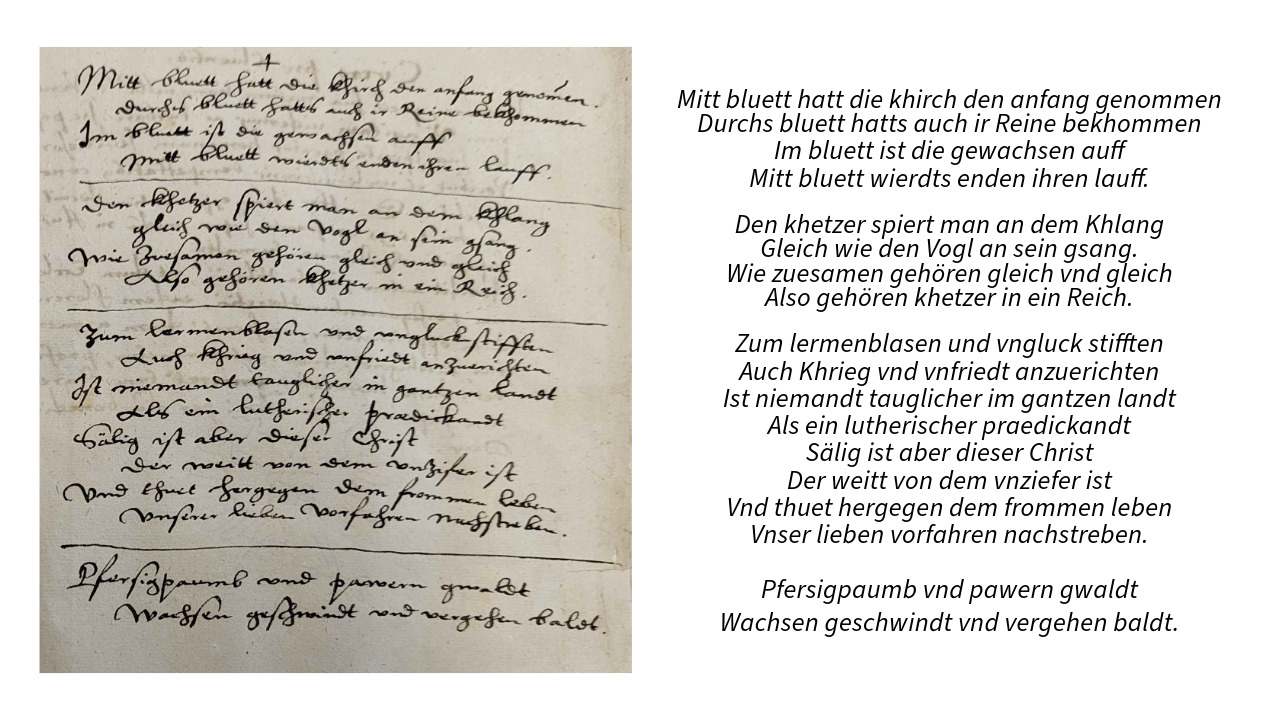 Mitt bluett hatt die khirch den anfang genom̄en.
durchs bluett hatts auch ir Reine bekhommen
Im bluett ist die gewachsen auff
Mitt bluett wierdts enden ihren lauff.
den khetzer spiert man an dem Khlang
gleich wie den Vogl an sein gsang.
Wie Zuesamen gehören gleich vnd gleich
Also gehören khetzer in ein Reich.
Zum lermenblasen vnd vngluck stifften
Auch Khrieg vnd vnfriedt anzuerichten
Ist niemandt tauglicher in gantzen landt
Als ein lutherischer prædickandt
Sälig ist aber dieser Christ
Der weitt von dem vnZifer ist
Vnd thuet hergegen dem frommen leben
Vnserer lieben Vorfahren nachstreben.
Pfersigpaumb vnd pawern gwaldt
Wachsen geschwindt vnd vergehen baldt.
Mitt bluett hatt die khirch den anfang genommen
Durchs bluett hatts auch ir Reine bekhommen
Im bluett ist die gewachsen auff
Mitt bluett wierdts enden ihren lauff.
Den khetzer spiert man an dem Khlang
Gleich wie den Vogl an sein gsang.
Wie zuesamen gehören gleich vnd gleich
Also gehören khetzer in ein Reich.
Zum lermenblasen und vngluck stifften
Auch Khrieg vnd vnfriedt anzuerichten
Ist niemandt tauglicher im gantzen landt
Als ein lutherischer praedickandt
Sälig ist aber dieser Christ
Der weitt von dem vnziefer ist
Vnd thuet hergegen dem frommen leben
Vnser lieben vorfahren nachstreben.
Pfersigpaumb vnd pawern gwaldt
Wachsen geschwindt vnd vergehen baldt.